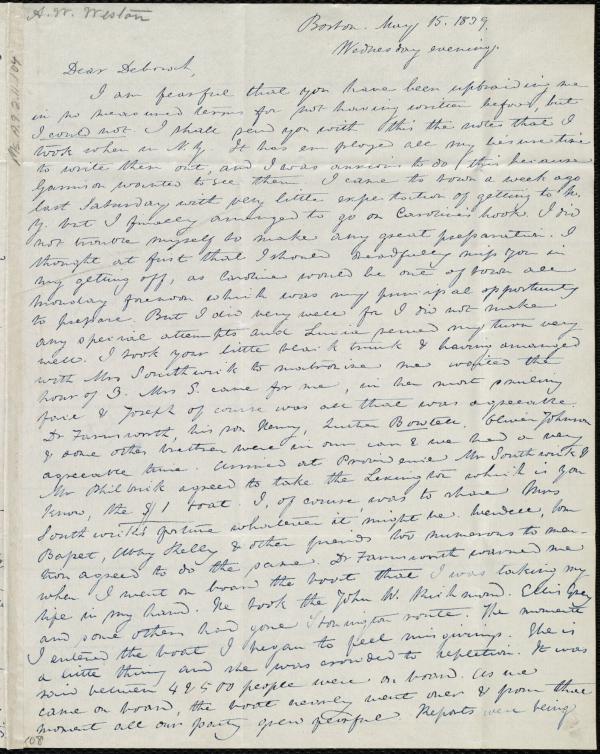 A. W. Weston
Boston. May 15. 1839.
Wednesday evening.
Dear Deborah,
I am fearful that you have been upbraiding me
in no measured terms for not having written before, but
I could not. I shall send you with this the notes that I
took when in N.Y. It has employed all my leisure time
to write them out, and I was anxious to do this because
Garrison wanted to see them. I came to town a week ago
last Saturday with very little expectation of getting to N.
Y. but I finally arranged to go on Caroline's hook. I did
not trouble myself to make any great preparation. I
thought at first that I should dreadfully miss you in
my getting off, as Caroline would be out of town all
Monday forenoon which was my principal opportunity
to prepare. But I did very well for I did not make
any special attempts and Lucia served my turn very
well. I took your little black trunk & having arranged
with Mrs Southwick to matronize me waited the
hour of 3. Mrs S. came for me, in her most smiling
face & Joseph of course was all that was agreeable.
Dr Farnsworth, his son Henry, Luther Boutell, Oliver Johnson
& some other brethren were in our car & we had a very
agreeable time. Arrived at Providence Mr Southwick &
Mr Philbrick agreed to take the Lexington which is you
know, the $1 boat. I, of course was to share Mrs
Southwick's fortune whatever it might be. Wendell,
Bapet, Abby Kelly & other friends too numerous to men-
tion agreed to do the same. Dr Farnsworth warned me
when I went on board the boat that I was taking my
life in my hand. He took the John W. Richmond. Ellis Gray
and some others had gone Stonington route. The moment
I entered the boat I began to feel misgivings. She is
a little thing and she was crowded to repletion. It was
said between 4 & 500 people were on board. As we
came on board, the boat nearly went over & from that
moment all our party grew fearful. Reports were being
168